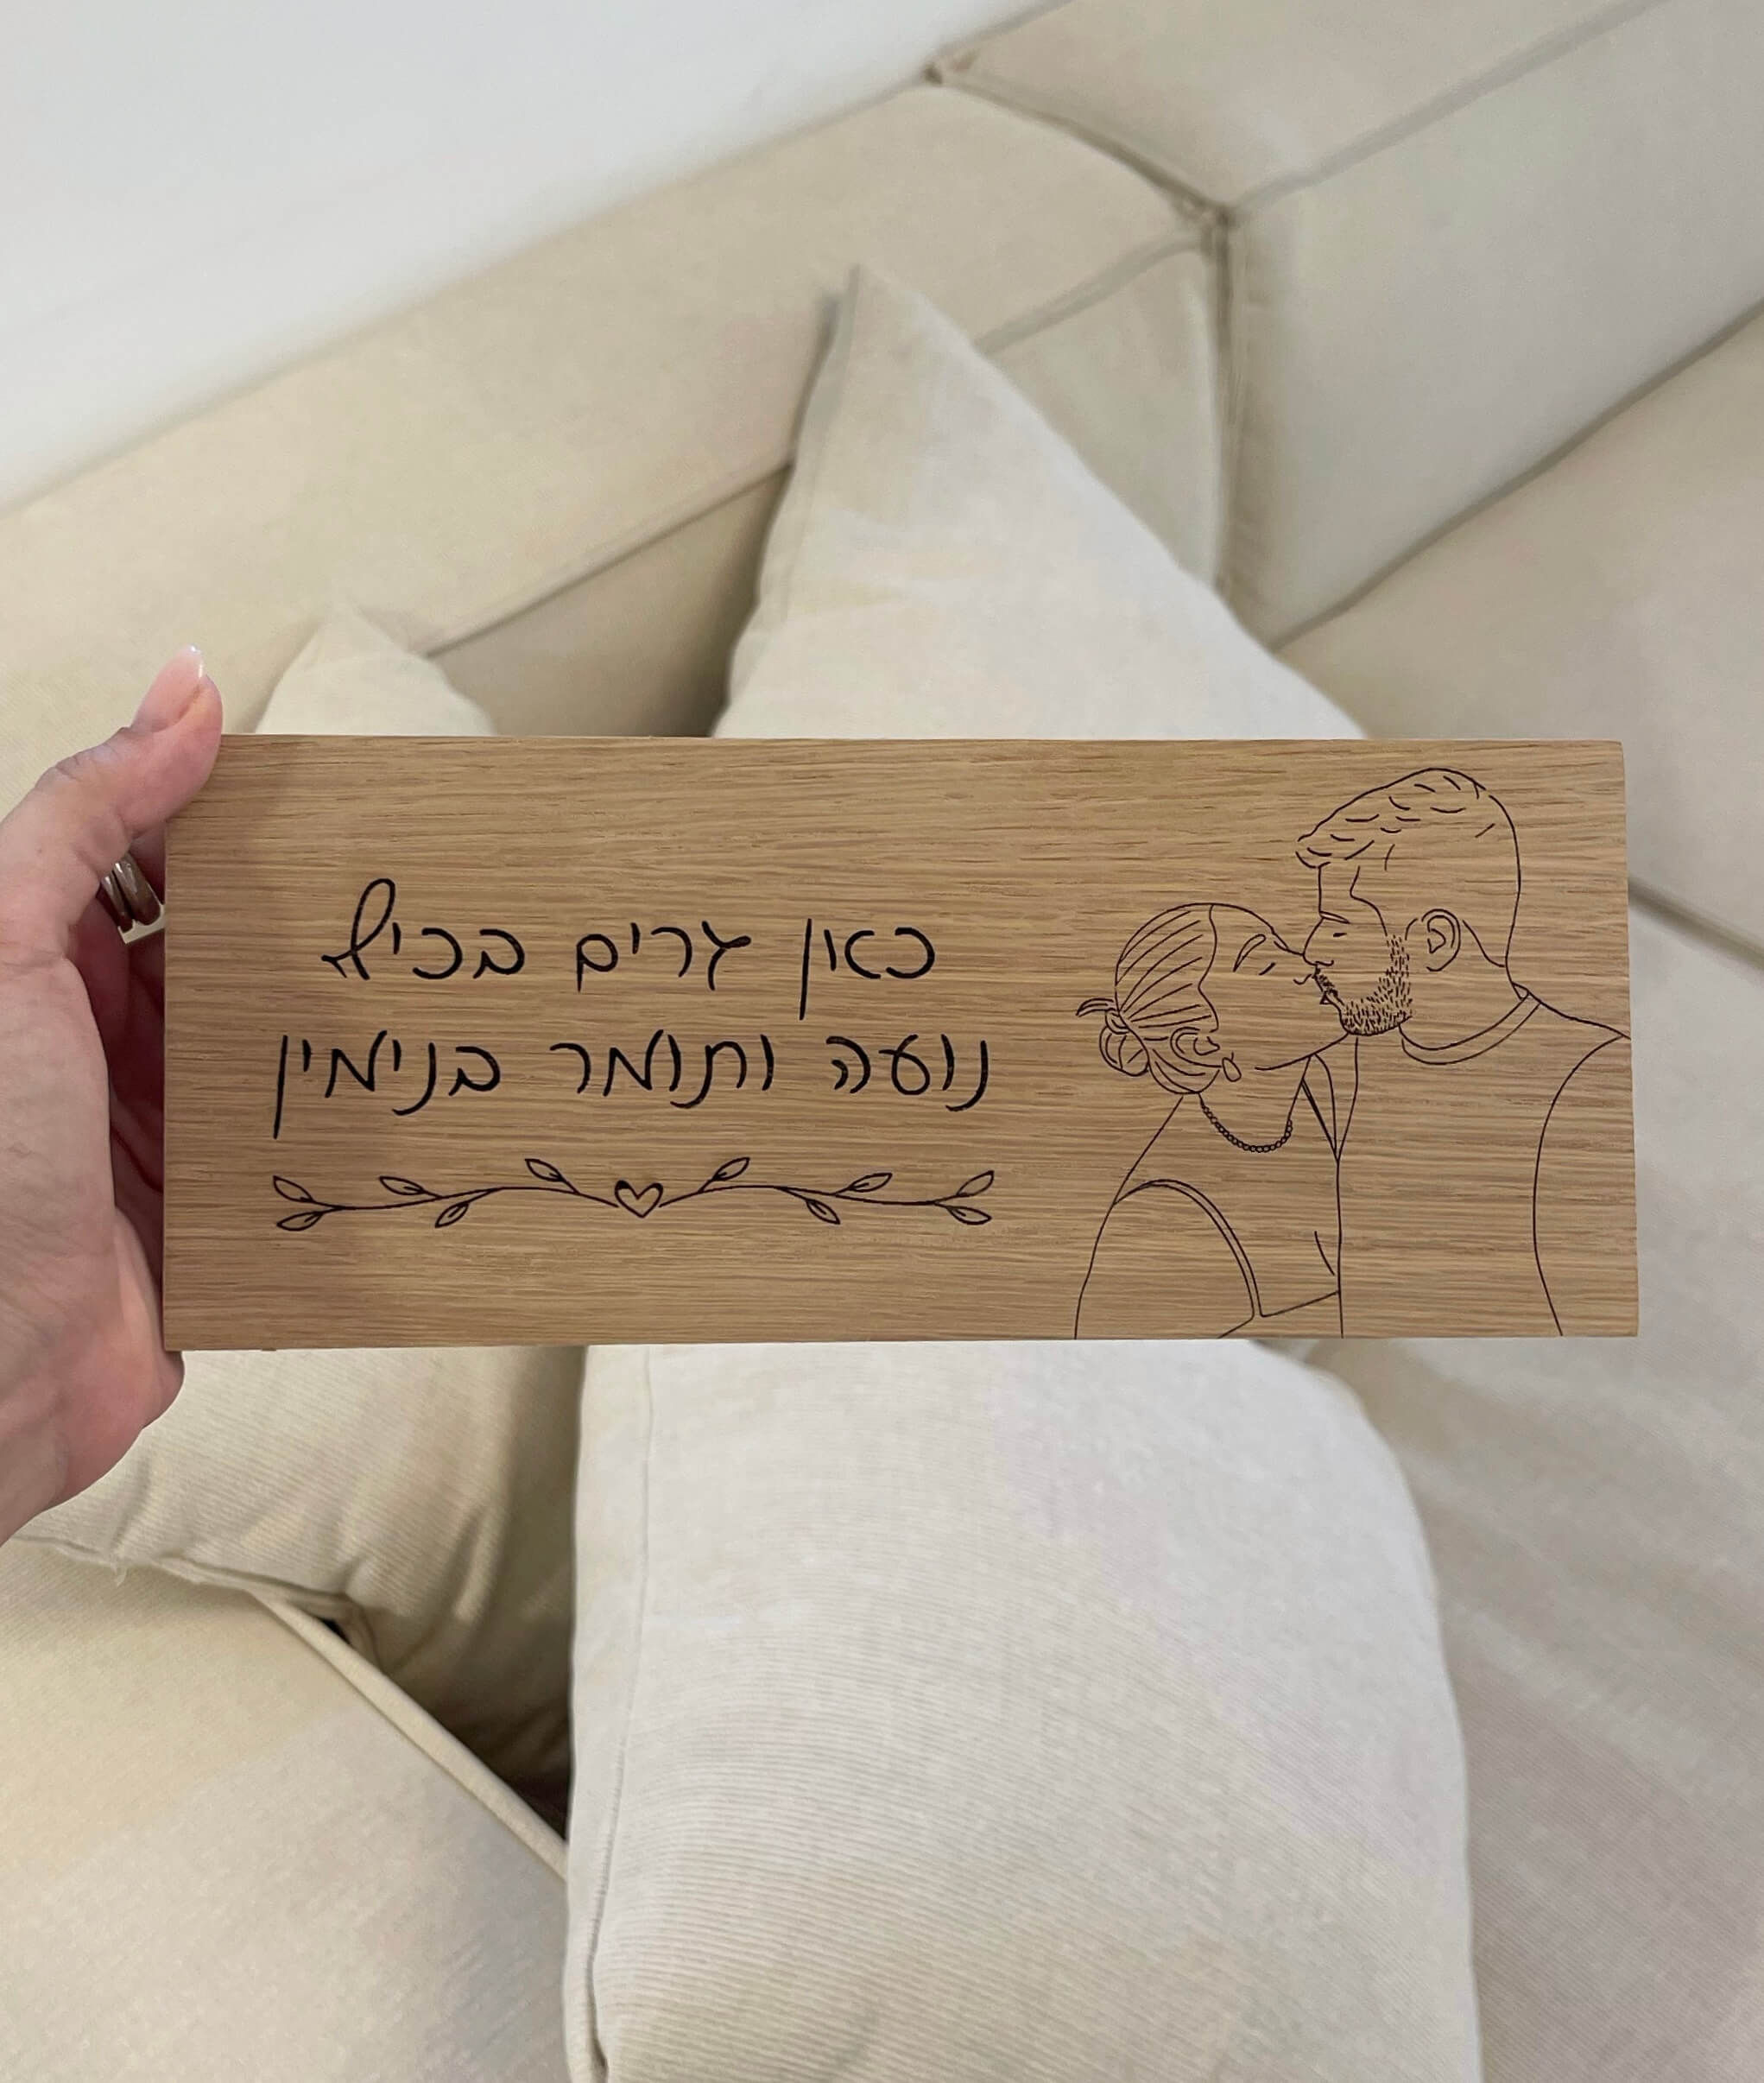 כאן גרים בכיף
נועה ותומר בנימין